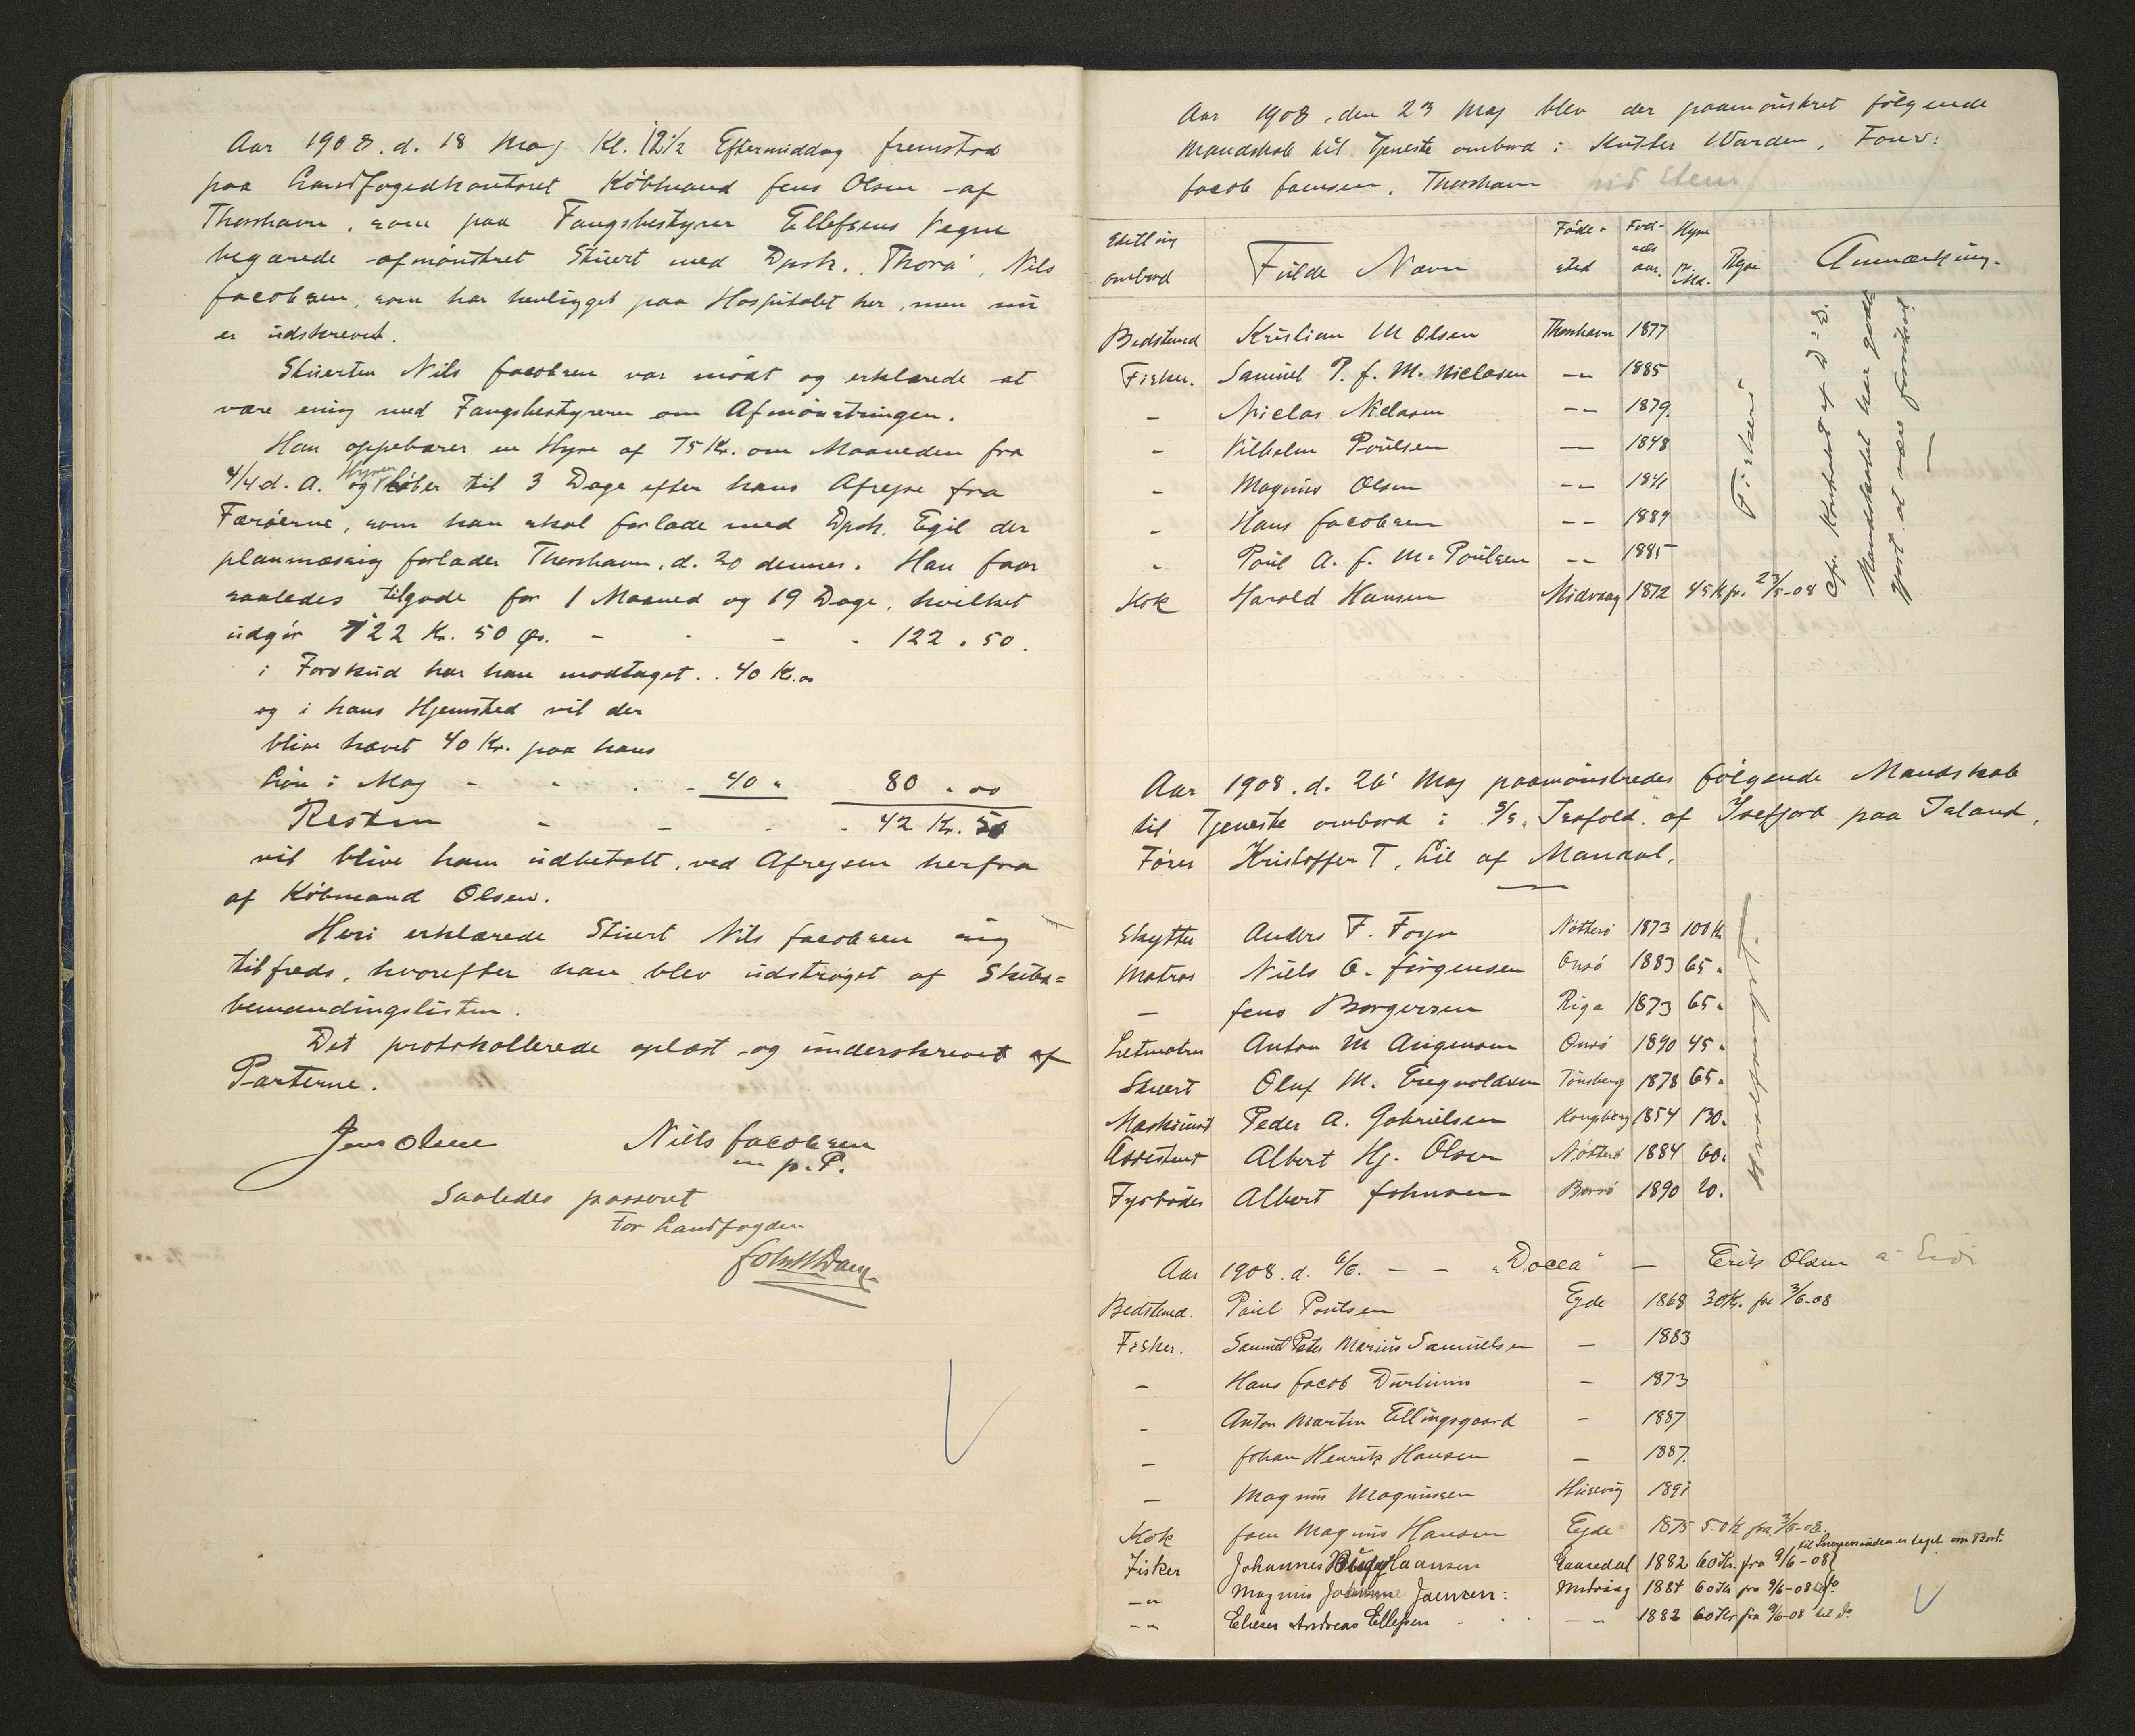 Aar 1908. d. 18 Maj Kl. 12 1/2 Eftermiddag fremstod
paa Landfogedkontoret Købmand Jens Olsen af
Thorshavn, som paa Fangsbestyrer Ellefsens Vegne
begærede afmönstret Stüert med Dpsk. "Thora", Nils
Jacobsen, som har henligget paa Hospitalet her, men nü
er üdskrevet.
Stüerten Nils Jacobsen var mödt og erklærede at
være enig med Fangsbestyreren om Afmönstringen.
Han oppebærer en Hyre af 75 Kr. om Maaneden fra
4/4 d. A. og Hyren löber til 3 Dage efter hans Afrejse fra
Færöerne, som han skal forlade med Dpsk. Egil der
planmæssig forlader Thorshavn d. 20 dennes. Han faar
saaledes tilgode for 1 Maaned og 19 Dage, hvilket
üdgör 122 Kr. 50 Ør. - - - - 122 . 50.
i Forsküd har han modtaget . . 40 Kr. "
og i hans Hjemsted vil der
blive hævet 40 Kr. paa hans
Lön i Maj - - - - 40 " 80 . 00
Resten - - - - 42 Kr. 50
vil blive ham üdbetalt ved Afrejsen herfra
af Købmand Olsen.
Heri erklærede Stüert Nils Jacobsen sig
tilfreds, hvorefter han blev üdströget af Skibs=
bemandingslisten.
Det protokollerede oplæst og ünderskrevet af
Parterne.
Jens Olsen Niels Jacobsen
m. p. P.
Saaledes passeret
For Landfogden
Aar 1908, den 23 Maj blev der paamönstret fölgende
Mandskab til Tjeneste ombord i Kutter Varden, Förer:
Jacob Joensen, Thorshavn
Stilling ombord Fülde Navn Föde-sted Föd-sels aar. Hyre pr. Md. Rejse Anmærkning.
Bedstmand Kristian M Olsen Thorshavn 1877
Fisker. Samüel P. J. M. Niclasen -- 1885
- Niclas Niclasen -- 1879.
- Vilhelm Poülsen -- 1848
- Magnüs Olsen -- 1841
- Hans Jacobsen -- 1889
- Poül A. J. M. Poülsen -- 1885
Kok Harald Hansen Midvaag 1872 45 Kr fr. 23/5-08
Fiskeri
Mandskabet har godt
gjort at være forsikret
Aar 1908. d. 26' Maj paamönstredes fölgende Mandskab
til Tjeneste ombord i S/S. "Isafold" af Isefjord paa Island,
Förer Kristoffer T. Lie af Mandal.
Skytter Anders F. Foyn Nötterö 1873 100 Kr
Matros Niels O. Jörgensen Onsö 1883 65 "
- Jens Borgersen Riga 1873 65 "
Letmatros Anton M Aügensen Onsö 1890 45 "
Stüert Oluf M. Engvoldsen Tönsberg 1878 65 "
Maskinist Peder A. Gabrielsen Kongsberg 1854 130.
Assistent Albert Hj. Olsen Nötterö 1884 60.
Fyrböder Albert Johnsen 1890 20.
Hvalfangst.
Aar 1908. d. 6/6. - - "Docea" - Erik Olsen á Eidi
Bedstmand. Poül Poülsen Ejde 1868 30 Kr. fra 3/6-08
Fisker. Samuel Peter Mariüs Samüelsen - 1883
- Hans Jacob Dürhüüs - 1873
- Anton Martin Ellingsgaard - 1887
- Johan Henrik Hansen - 1887.
- Magnüs Magnüssen Hüsevig 1891
Kok Joen Magnüs Hansen Ejde 1875 50 Kr fra 3/6-08
til er taget om Bord.
Fisker Johannes Haansen Gaasedal 1882 60 Kr. fra 9/6-08
-"- Magnüs Joensen: Midvaag 1884 60 Kr fra 9/6-08 til do
-"- Elieser Andreas Ellefsen -- 1882 60 Kr fra 9/6-08 til do